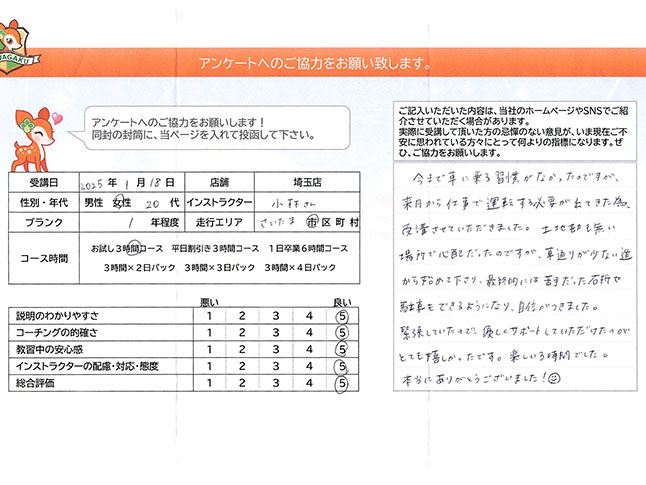 NAGAKU
アンケートへのご協力をお願い致します。
アンケートへのご協力をお願いします！
同封の封筒に、当ページを入れて投函して下さい。
受講日 2025年 1月 18日 店舗 埼玉店
性別・年代 男性 女性 20代 インストラクター 小林さん
ブランク 1 年程度 走行エリア さいたま 市区町村
コース時間 お試し3時間コース 平日割引き3時間コース 1日卒業6時間コース
3時間×2日パック 3時間×3日パック 3時間×4日パック
悪い 良い
説明のわかりやすさ 1 2 3 4 5
コーチングの的確さ 1 2 3 4 5
教習中の安心感 1 2 3 4 5
インストラクターの配慮・対応・態度 1 2 3 4 5
総合評価 1 2 3 4 5
ご記入いただいた内容は、当社のホームページやSNSでご紹
介させていただく場合があります。
実際に受講して頂いた方の忌憚のない意見が、いま現在ご不
安に思われている方々にとって何よりの指標になります。ぜ
ひ、ご協力をお願いします。
今まで車に乗る習慣がなかったのですが、
来月から仕事で運転する必要が出てきた為、
受講させていただきました。土地勘も無い
場所で心配だったのですが、車通りが少ない道
から始めて下さり、最終的には苦手だった右折や
駐車もできるようになり、自信がつきました。
緊張していたので、優しくサポートしていただけたのが
とても嬉しかったです。楽しい3時間でした。
本当にありがとうございました！